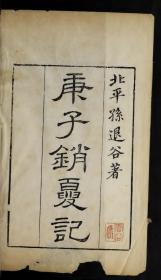 北平孫退谷著
庚子銷夏記